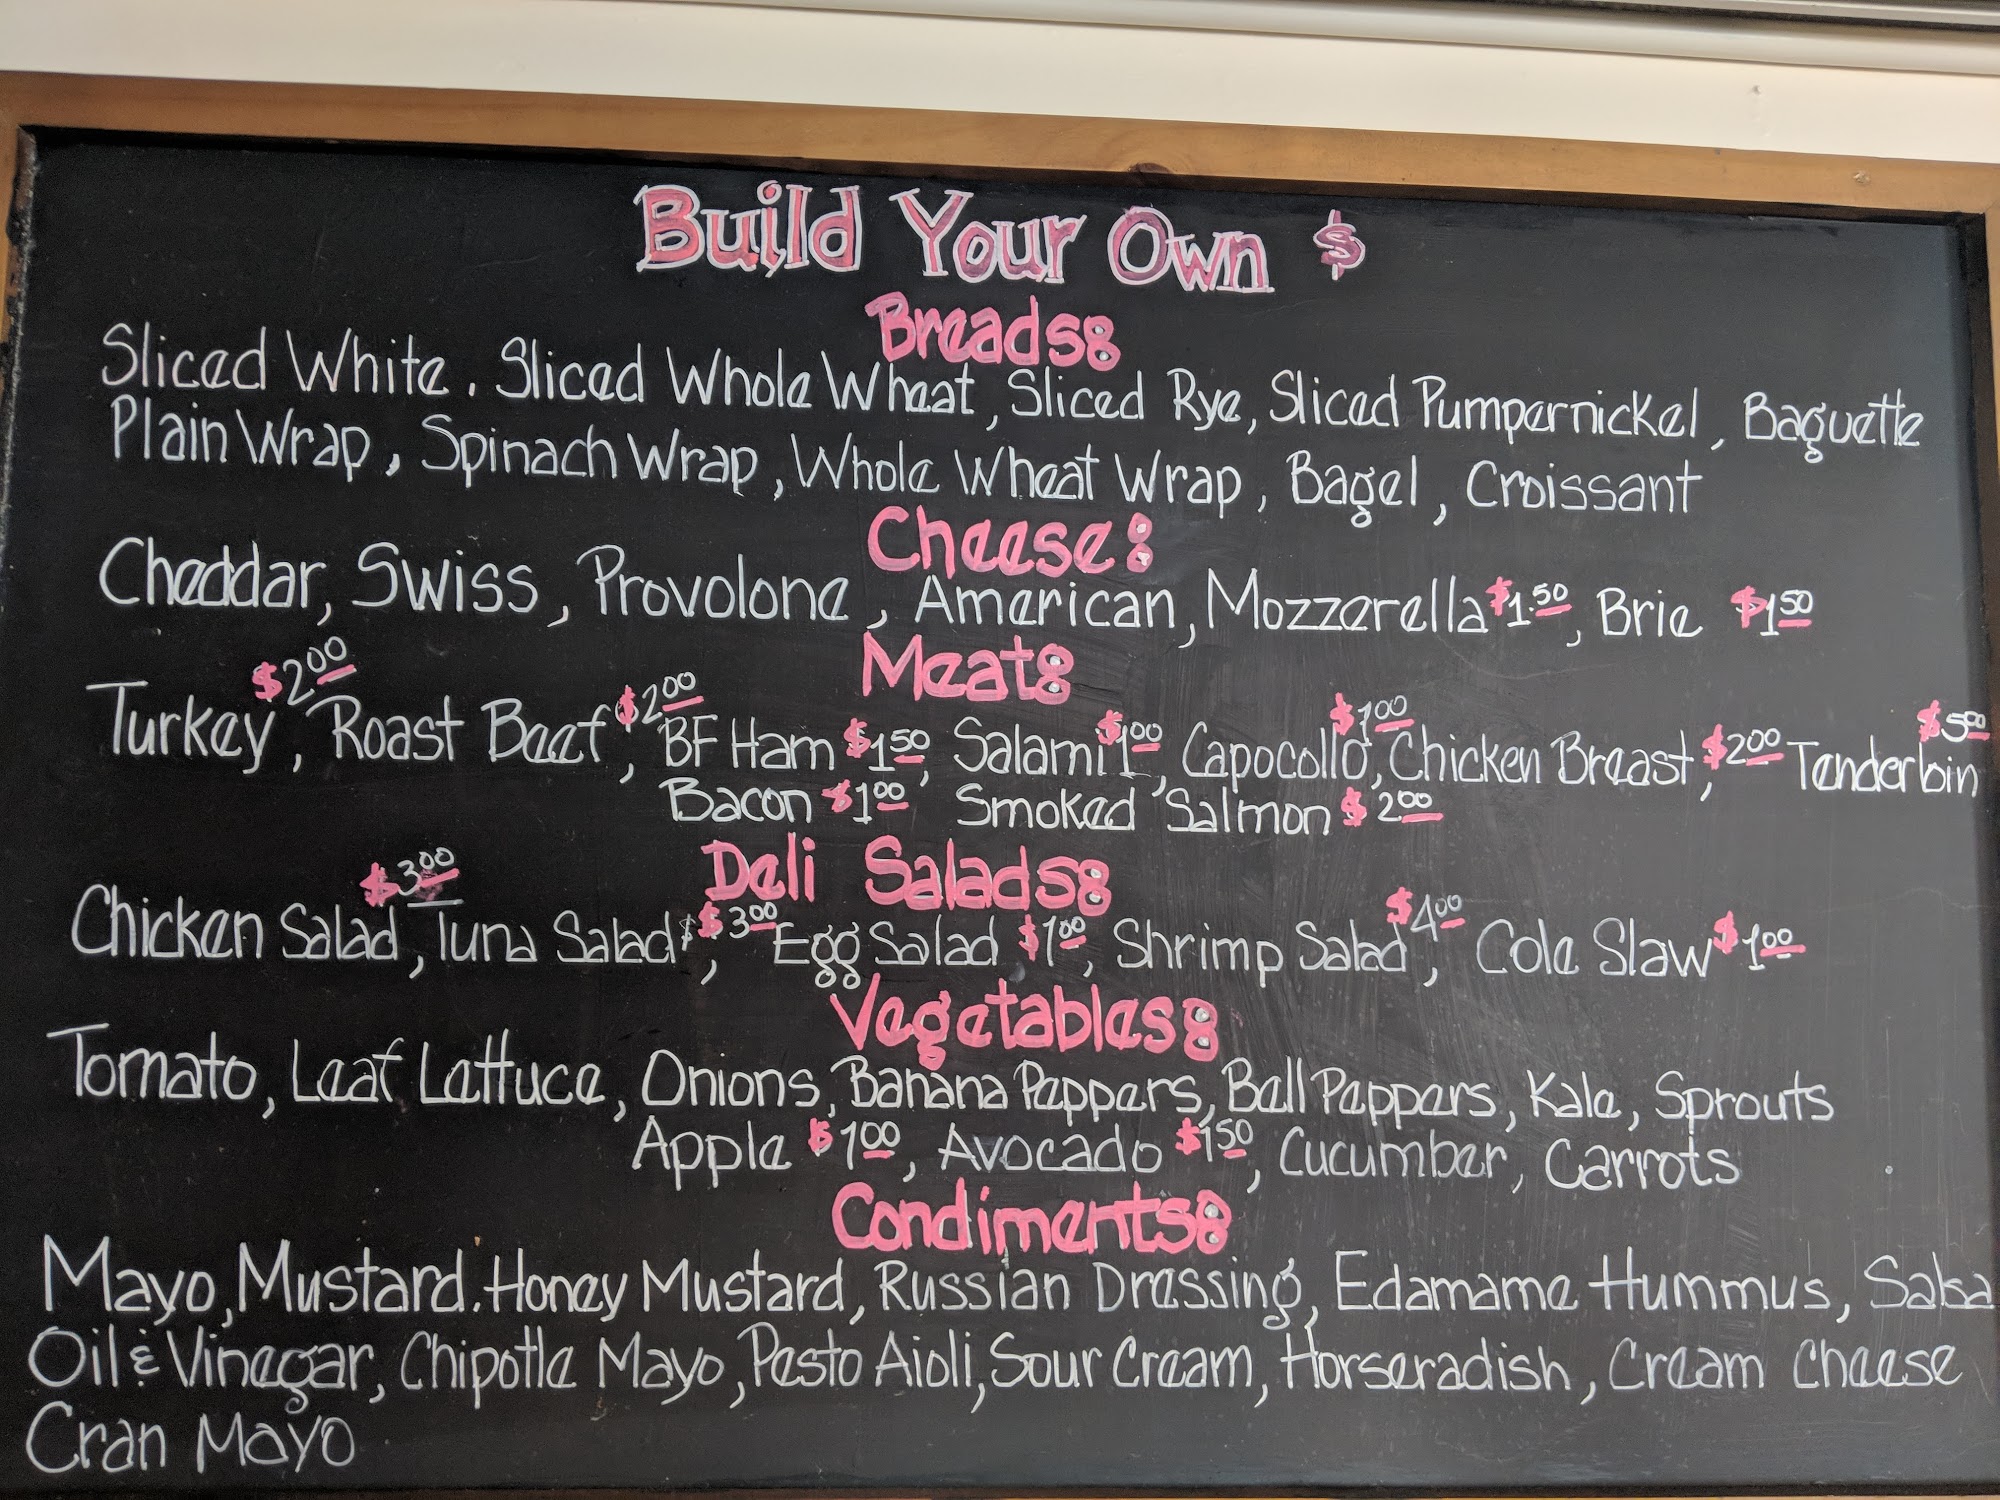 Build Your Own $
Breads:
Sliced White. Sliced Whole Wheat, Sliced Rye, Sliced Pumpernickel, Baguette
Plain Wrap, Spinach Wrap, Whole Wheat Wrap, Bagel, Croissant
Cheese:
Cheddar, Swiss, Provolone, American, Mozzerella $1.50, Brie $1 50
Meat:
Turkey $2 00, Roast Beef $2 00, BF Ham $1 50, Salami $1 00, Capocollo $1 00, Chicken Breast, $2 00 Tenderloin $5 00
Bacon $1 00 Smoked Salmon $2 00
Deli Salads:
Chicken Salad $3 00, Tuna Salad $3 00, Egg Salad $1 00, Shrimp Salad $4 00, Cole Slaw $1 00
Vegetables:
Tomato, Leaf Lettuce, Onions, Banana Peppers, Bell Peppers, Kale, Sprouts
Apple $1 00, Avocado $1 50, Cucumber, Carrots
Condiments:
Mayo, Mustard. Honey Mustard, Russian Dressing, Edamame Hummus, Salsa
Oil & Vinegar, Chipotle Mayo, Pesto Aioli, Sour Cream, Horseradish, Cream Cheese
Cran Mayo